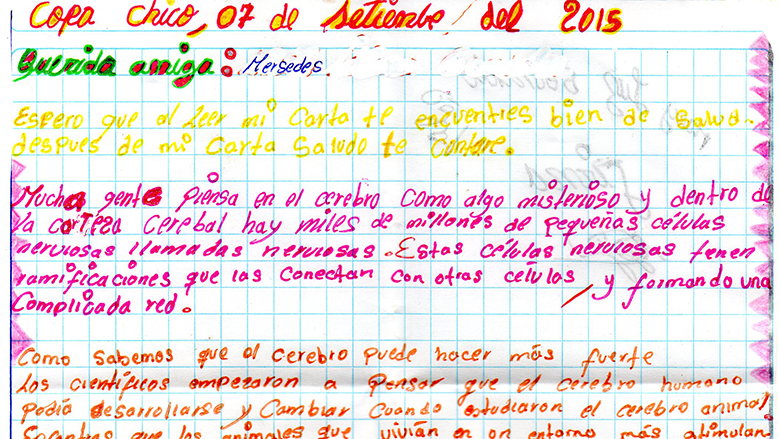 Copa Chico, 07 de Setiembre del 2015
Querida amiga: Mersedes
Espero que al Leer mi Carta te encuentres bien de Salud.
despues de mi Carta Saludo te Contare.
Mucha gente Piensa en el cerebro como algo misterioso y dentro de
la corteza Cerebal hay miles de millones de pequeñas células
nerviosas llamadas nerviosas. Estas células nerviosas tenen
ramificaciones que las conectan con otras células y formando una
Complicada red.
Como Sabemos que el cerebro puede hacer más fuerte
Los científicos empezaron a Pensar que el cerebro humano
Podía desarrollarse y Cambiar Cuando estudiaron el cerebro animal
que los animales que vivían en on entorno más